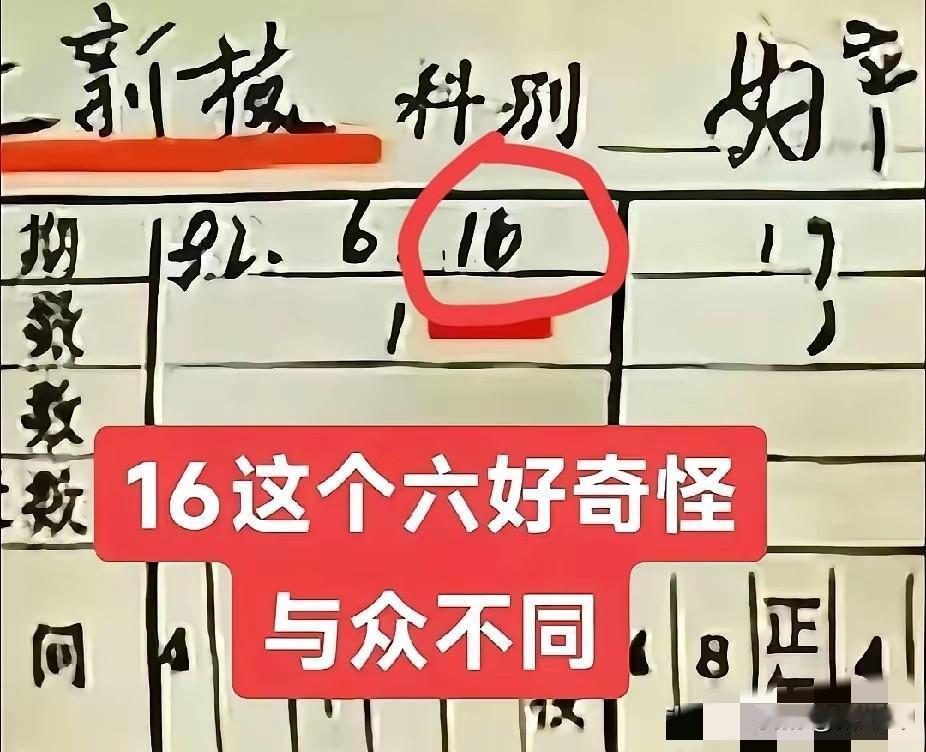 新枝 科别 妇产
期 92. 6 16 17
数 1 1
数
数
16这个六好奇怪
与众不同
间 4 8 正午 4